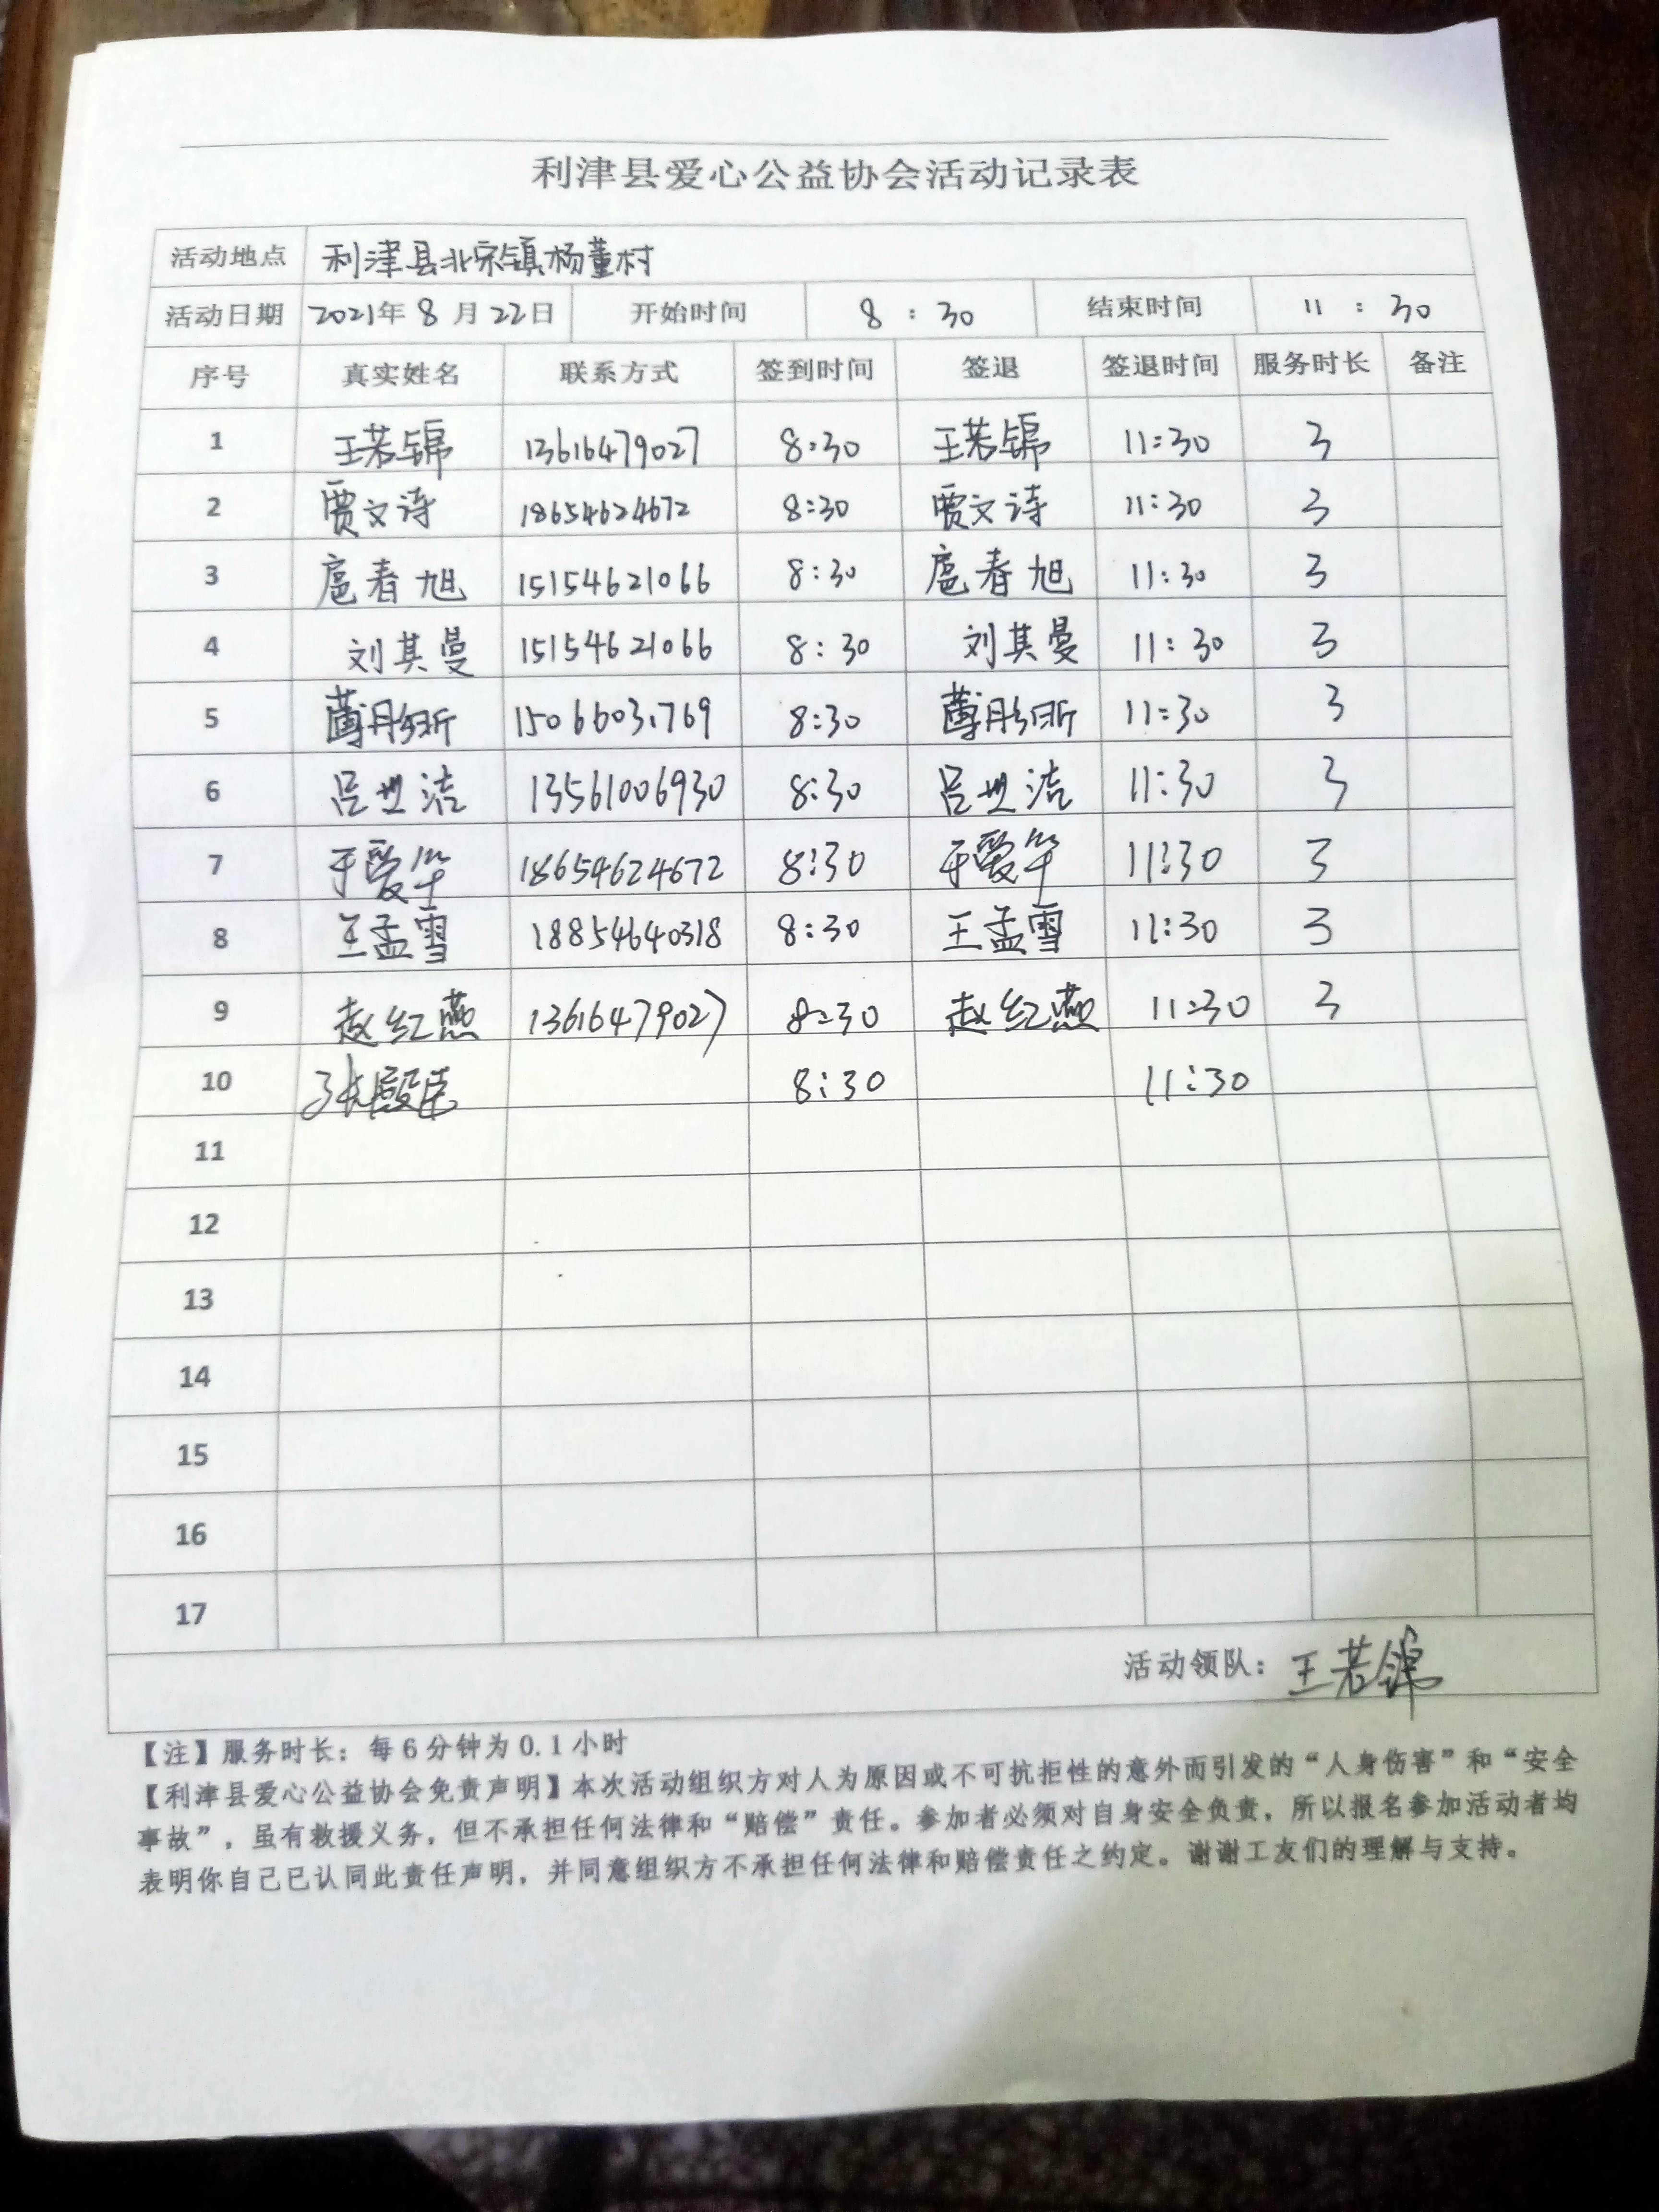 利津县爱心公益协会活动记录表
活动地点 利津县北宋镇杨董村
活动日期 2021年 8 月 22日 开始时间 8 : 30 结束时间 11 : 30
序号 真实姓名 联系方式 签到时间 签退 签退时间 服务时长 备注
1 王若锦 13616479027 8:30 王若锦 11:30 3
2 贾文诗 18654624672 8:30 贾文诗 11:30 3
3 扈春旭 15154621066 8:30 扈春旭 11:30 3
4 刘其曼 15154621066 8:30 刘其曼 11:30 3
5 15066031769 8:30 11:30 3
6 吕世洁 13561006930 8:30 吕世洁 11:30 3
7 于爱华 18654624672 8:30 于爱华 11:30 3
8 王孟雪 18854640318 8:30 王孟雪 11:30 3
9 赵红燕 13616479027 8:30 赵红燕 11:30 3
10 8:30 11:30
11
12
13
14
15
16
17
活动领队：王若锦
【注】服务时长：每6分钟为0.1小时
【利津县爱心公益协会免责声明】本次活动组织方对人为原因或不可抗拒性的意外而引发的“人身伤害”和“安全
事故”，虽有救援义务，但不承担任何法律和“赔偿”责任。参加者必须对自身安全负责，所以报名参加活动者均
表明你自己已认同此责任声明，并同意组织方不承担任何法律和赔偿责任之约定。谢谢工友们的理解与支持。